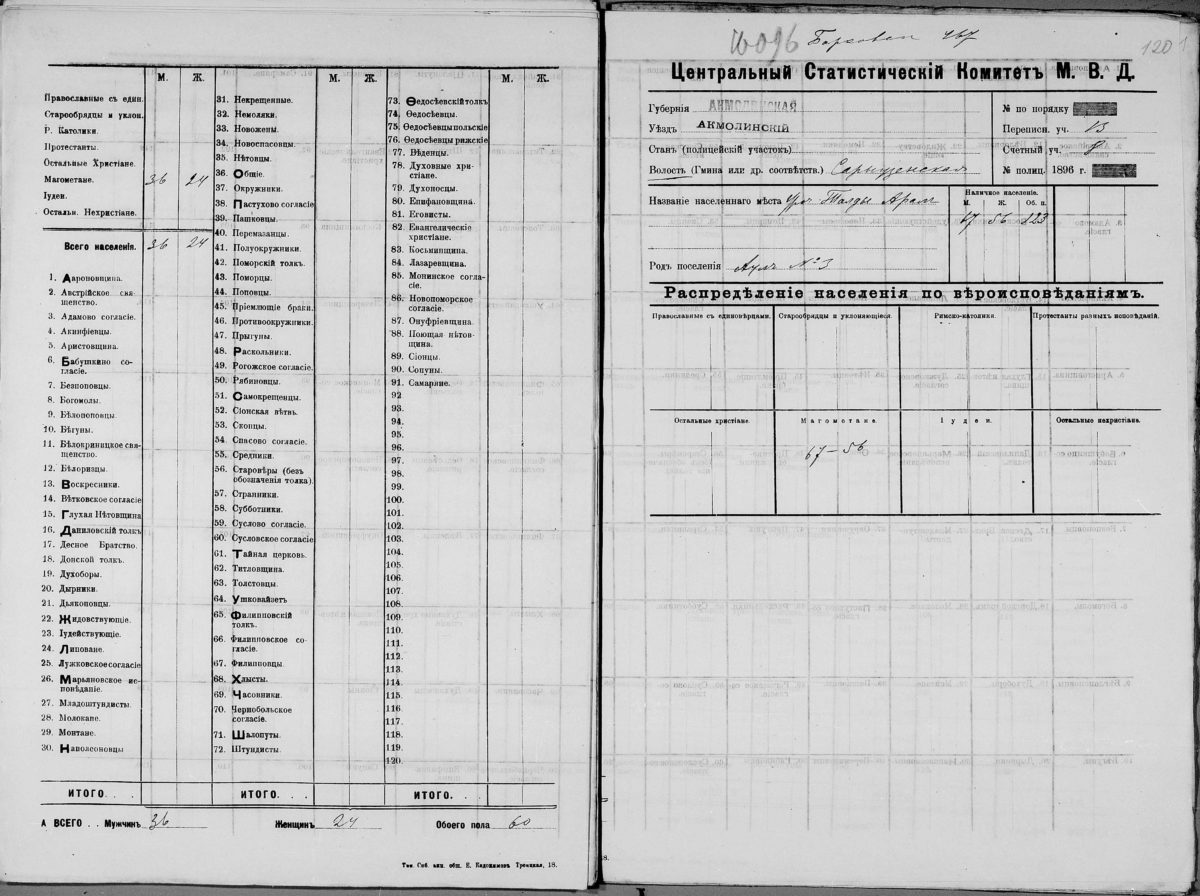 М. Ж. М. Ж. М. Ж.
Православные съ един.
Старообрядцы и уклон.
Р. Католики.
Протестанты.
Остальные Христіане.
Магометане. 36 24
Іудеи.
Остальн. Нехристіане.
Всего населенія. 36 24
1. Аароновщина.
2. Австрійское свя-
щенство.
3. Адамово согласіе.
4. Акинфіевцы.
5. Аристовщина.
6. Бабушкино со-
гласіе.
7. Безпоповцы.
8. Богомолы.
9. Бѣлопоповцы.
10. Бѣгуны.
11. Бѣлокриницкое свя-
щенство.
12. Бѣлоризцы.
13. Воскресники.
14. Вѣтковское согласіе
15. Глухая Нѣтовщина
16. Даниловскій толкъ
17. Десное Братство.
18. Донской толкъ.
19. Духоборы.
20. Дырники.
21. Дьяконовцы.
22. Жидовствующіе.
23. Іудействующіе.
24. Липоване.
25. Лужковское согласіе
26. Марьяновское ис-
повѣданіе.
27. Младоштундисты.
28. Молокане.
29. Монтане.
30. Наполеоновцы
31. Некрещенные.
32. Немоляки.
33. Новожены.
34. Новоспасовцы.
35. Нѣтовцы.
36. Общіе.
37. Окружники.
38. Пастухово согласіе
39. Пашковцы.
40. Перемазанцы.
41. Полуокружники.
42. Поморскій толкъ.
43. Поморцы.
44. Поповцы.
45. Пріемлющіе браки.
46. Противоокружники.
47. Прыгуны.
48. Раскольники.
49. Рогожское согласіе.
50. Рябиновцы.
51. Самокрещенцы.
52. Сіонская вѣтвь.
53. Скопцы.
54. Спасово согласіе.
55. Средники.
56. Старовѣры (безъ
обозначенія толка).
57. Странники.
58. Субботники.
59. Суслово согласіе.
60. Сусловское согласіе
61. Тайная церковь.
62. Титловщина.
63. Толстовцы.
64. Ушковайзетъ
65. Филипповскій
толкъ.
66. Филипповское со-
гласіе.
67. Филипповцы.
68. Хлысты.
69. Часовники.
70. Чернобольское
согласіе.
71. Шалопуты.
72. Штундисты.
73. Ѳедосѣевскій толкъ
74. Ѳедосѣевцы.
75. Ѳедосѣевцы польскіе
76. Ѳедосѣевцы рижскіе
77. Вѣденцы.
78. Духовные хри-
стіане.
79. Духоносцы.
80. Епифановщина.
81. Еговисты.
82. Евангелическіе
христіане.
83. Косьминщина.
84. Лазаревщина.
85. Монинское согла-
сіе.
86. Новопоморское
согласіе.
87. Онуфріевщина.
88. Поющая нѣтов-
щина.
89. Сіонцы.
90. Сопуны.
91. Самаряне.
92
93.
94.
95.
96.
97.
98.
99.
100.
101.
102.
103.
104.
105.
106.
107.
108.
109.
110.
111.
112.
113.
114.
115.
116.
117.
118.
119.
120.
ИТОГО. . . ИТОГО. . . ИТОГО. . .
А ВСЕГО . . Мужчинъ 36 Женщинъ 24 Обоего пола 60
Троицкая, 18.
120
Центральный Статистическій Комитетъ М. В. Д.
Губернія АКМОЛИНСКАЯ
Уѣздъ АКМОЛИНСКІЙ
Станъ (полицейскій участокъ)
Волость (Гмина или др. соотвѣтств.)
№ по порядку
Переписн. уч. 13
Счетный уч. 8
№ полиц. 1896 г.
Названіе населеннаго мѣста Ур. Талды Аралъ
Наличное населеніе.
М. Ж. Об. п.
67 56 123
Родъ поселенія Аулъ № 3
Распредѣленіе населенія по вѣроисповѣданіямъ.
Православныхъ съ единовѣрцами. Старообрядцы и уклоняющіеся. Римско-католики. Протестанты разныхъ исповѣданій.
Остальные христіане. Магометане. Іудеи. Остальные нехристіане.
67 — 56